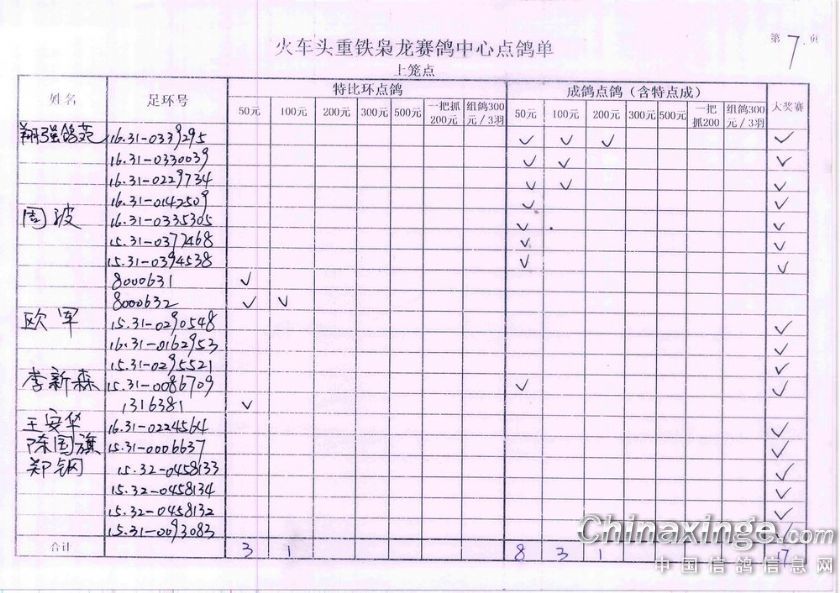 第 7 页
火车头重铁枭龙赛鸽中心点鸽单
上笼点
姓名 足环号 特比环点鸽 成鸽点鸽（含特点成） 大奖赛
50元 100元 200元 300元 500元 一把抓200元 组鸽300元/3羽 50元 100元 200元 300元 500元 一把抓200 组鸽300元/3羽
翔强鸽苑 16.31-0339295 ✓ ✓ ✓ ✓
16.31-0330039 ✓ ✓ ✓
16.31-0229734 ✓ ✓ ✓
16.31-0142509 ✓ ✓
周波 16.31-0335305 ✓ ✓
15.31-0377468 ✓ ✓
15.31-0394538 ✓ ✓
8000631 ✓
8000632 ✓ ✓
欧军 15.31-0290548 ✓
16.31-0162953 ✓
15.31-0295521 ✓
李新森 15.31-0086709 ✓ ✓
1316381 ✓
王安华 16.31-0224564 ✓
陈国旗 15.31-0006637 ✓
郑钢 15.32-0458133 ✓
15.32-0458134 ✓
15.32-0458132 ✓
15.31-0093083 ✓
合计 3 1 8 3 1 17
Chinaxinge.com
中国信鸽信息网